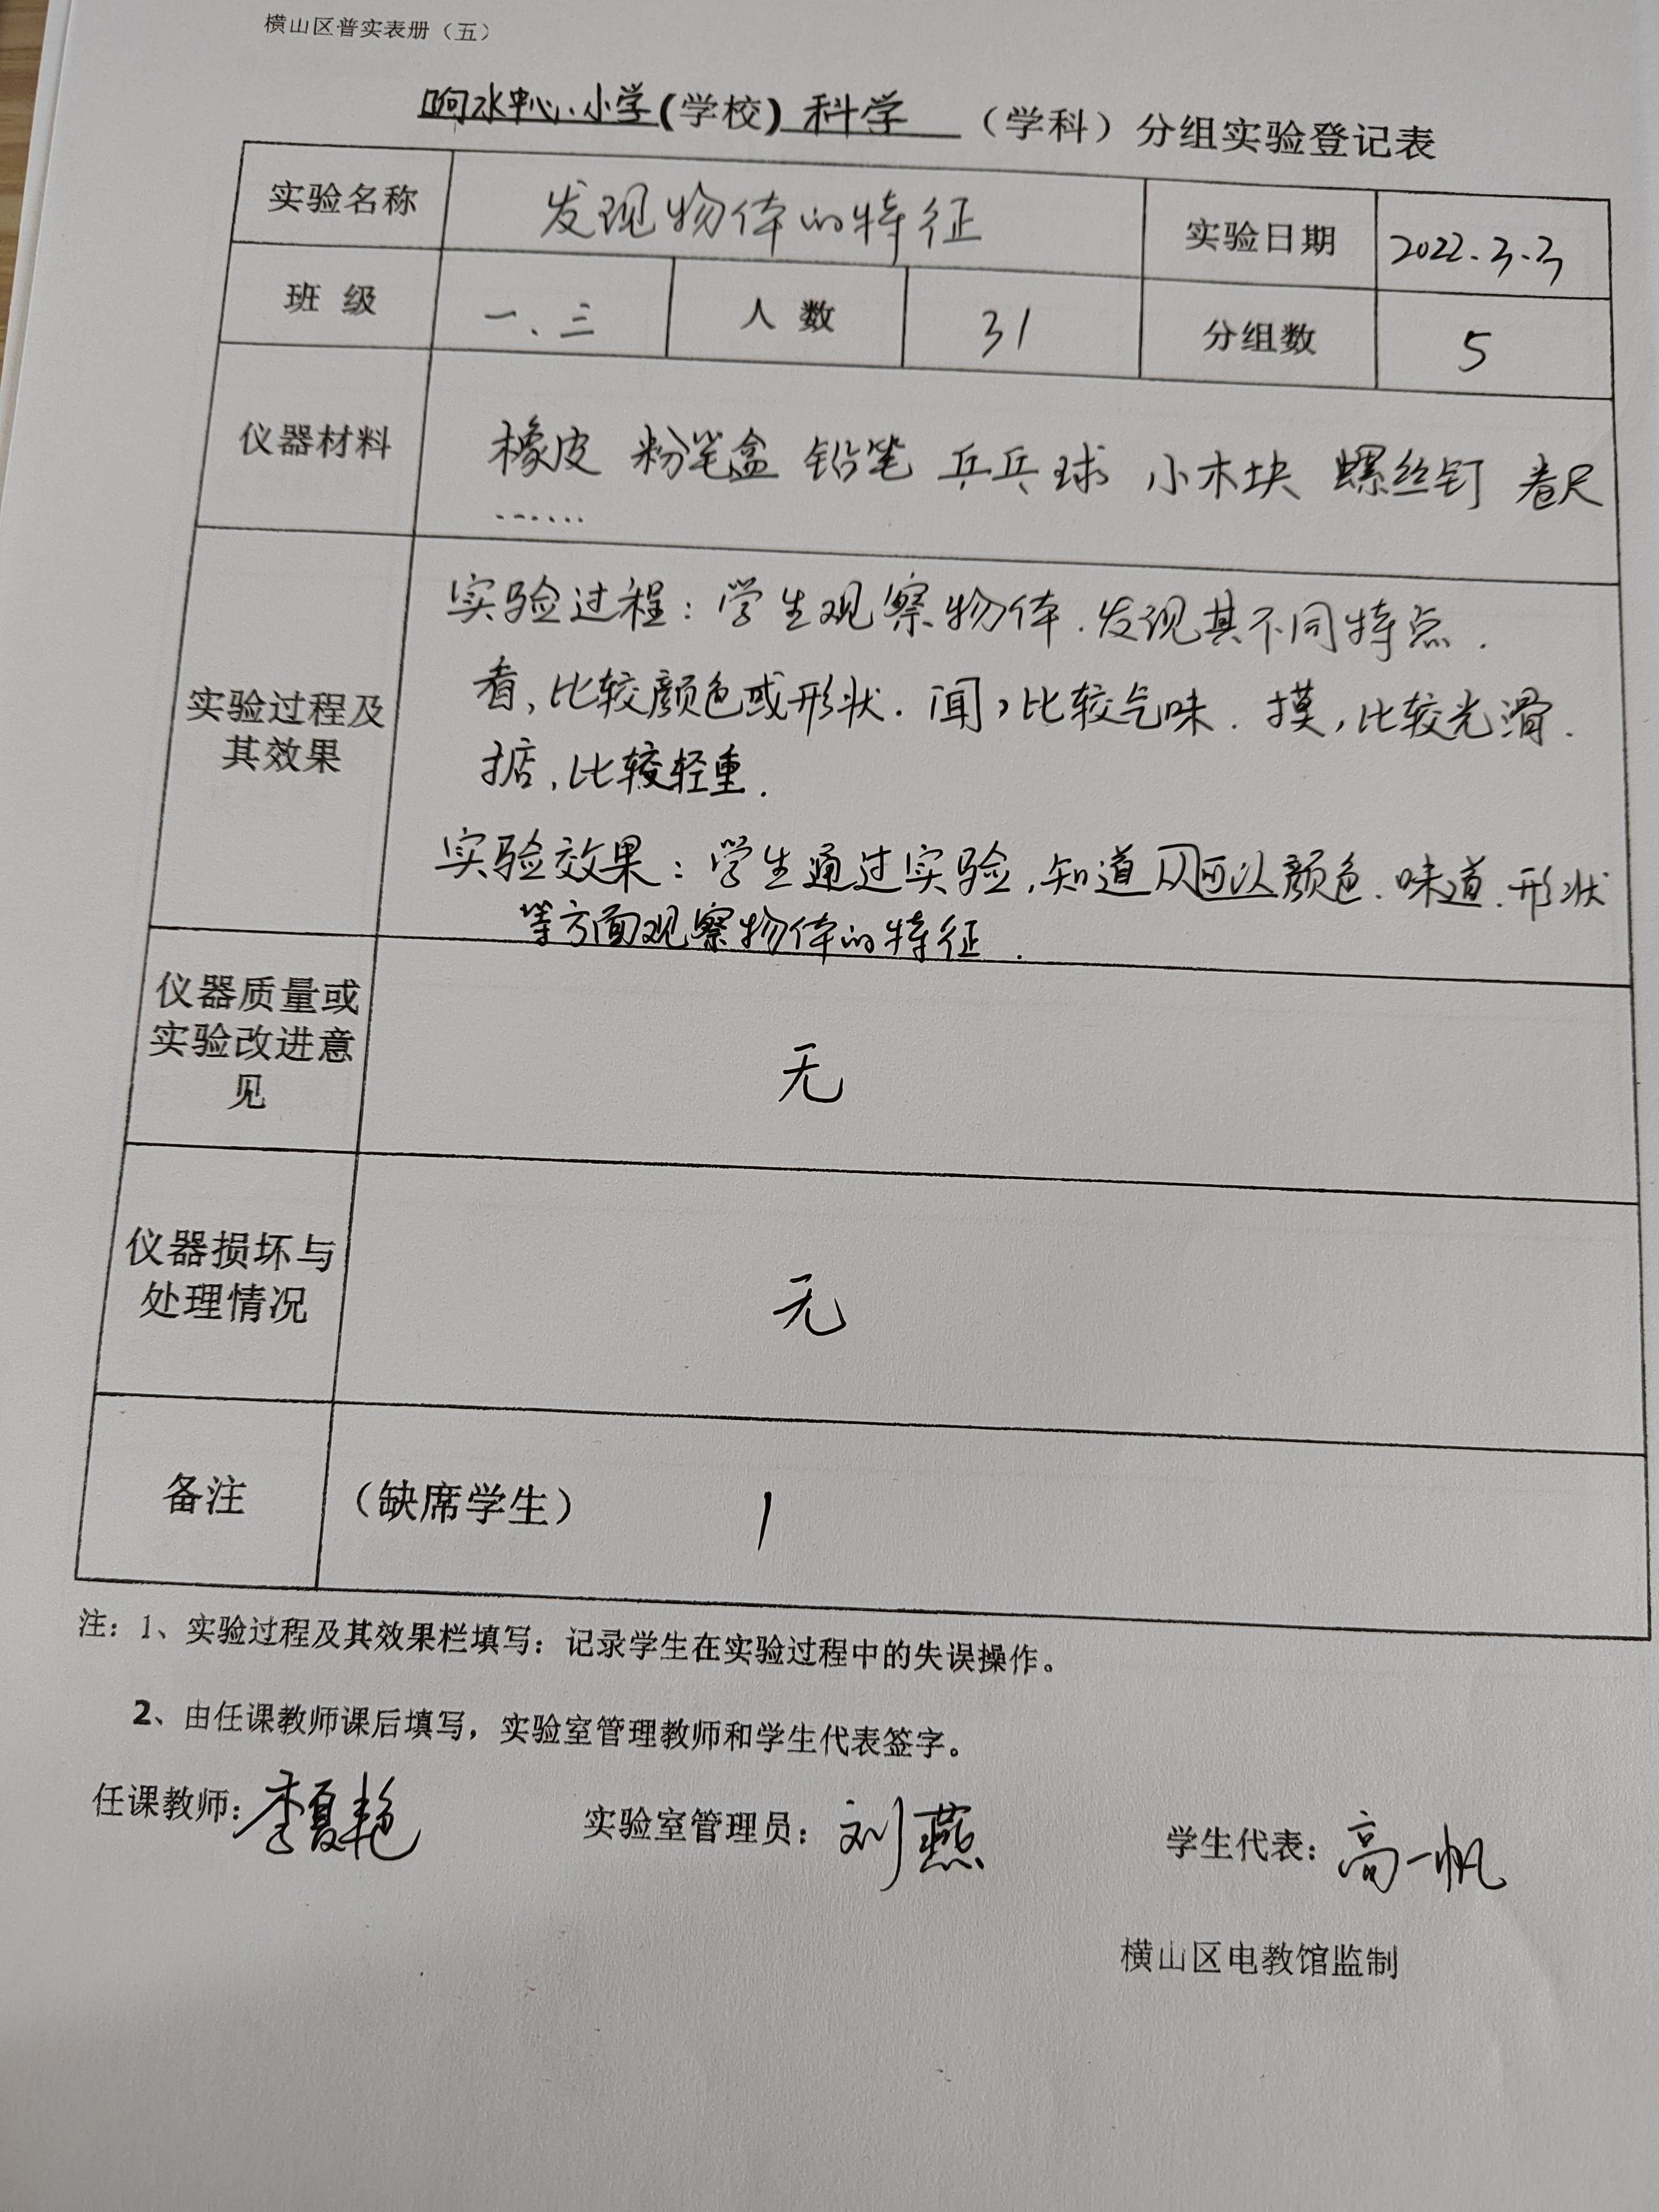 横山区普实表册（五）
响水中心小学(学校) 科学 （学科）分组实验登记表
实验名称 发现物体的特征 实验日期 2022.3.3
班 级 一、三 人 数 31 分组数 5
仪器材料 橡皮 粉笔盒 铅笔 乒乓球 小木块 螺丝钉 卷尺
……
实验过程及
其效果
实验过程：学生观察物体.发现其不同特点.
看,比较颜色或形状.闻,比较气味.摸,比较光滑.
掂,比较轻重.
实验效果：学生通过实验,知道从可以颜色.味道.形状
等方面观察物体的特征.
仪器质量或
实验改进意
见
无
仪器损坏与
处理情况
无
备注 （缺席学生） 1
注：1、实验过程及其效果栏填写：记录学生在实验过程中的失误操作。
2、由任课教师课后填写，实验室管理教师和学生代表签字。
任课教师：李夏艳 实验室管理员：刘燕 学生代表：高一帆
横山区电教馆监制